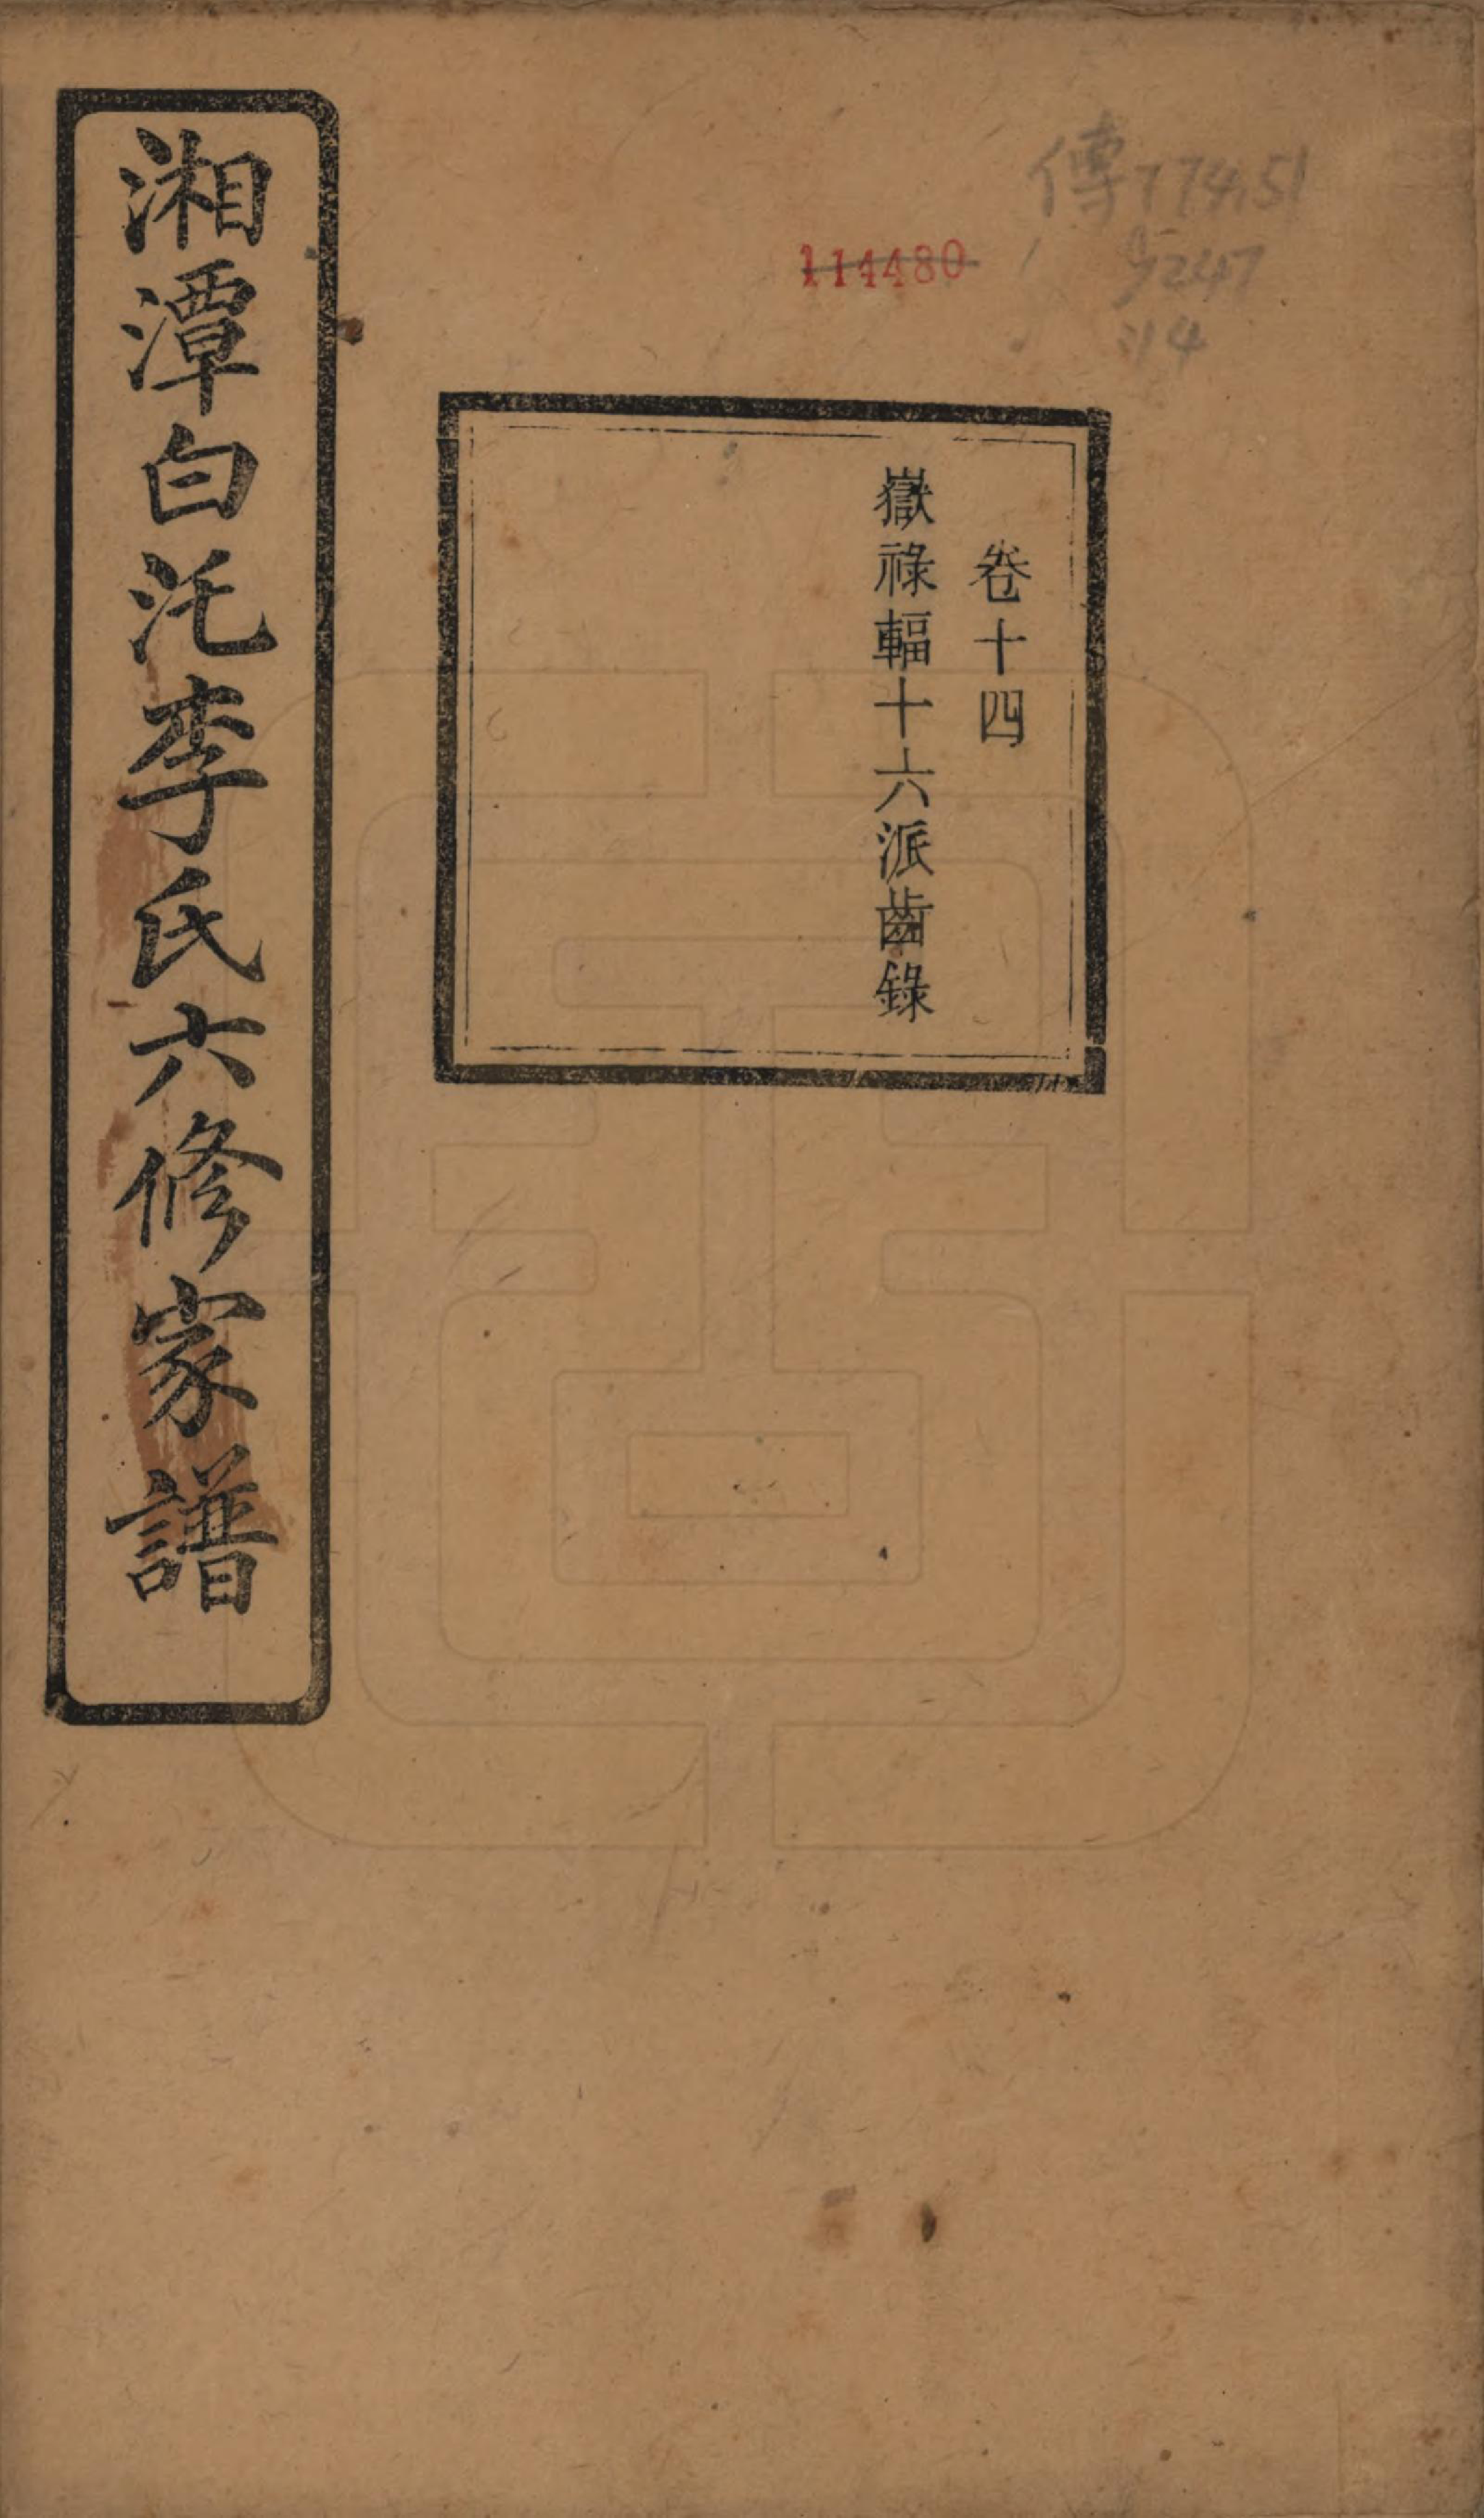 傳774.51
114480
9247
:14
卷十四
嶽祿輻十六派齒錄
湘潭白汑李氏六修家譜